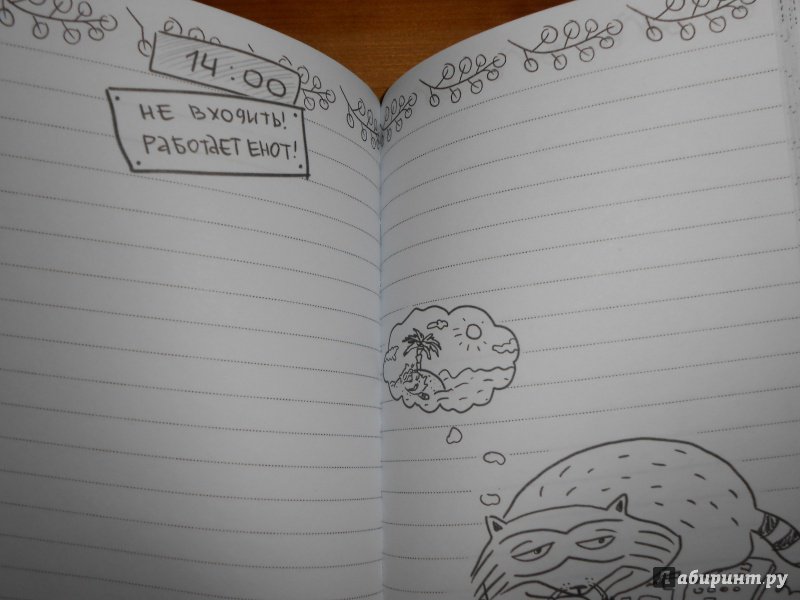 14:00
НЕ ВХОДИТЬ!
РАБОТАЕТ ЕНОТ!
Лабиринт.ру